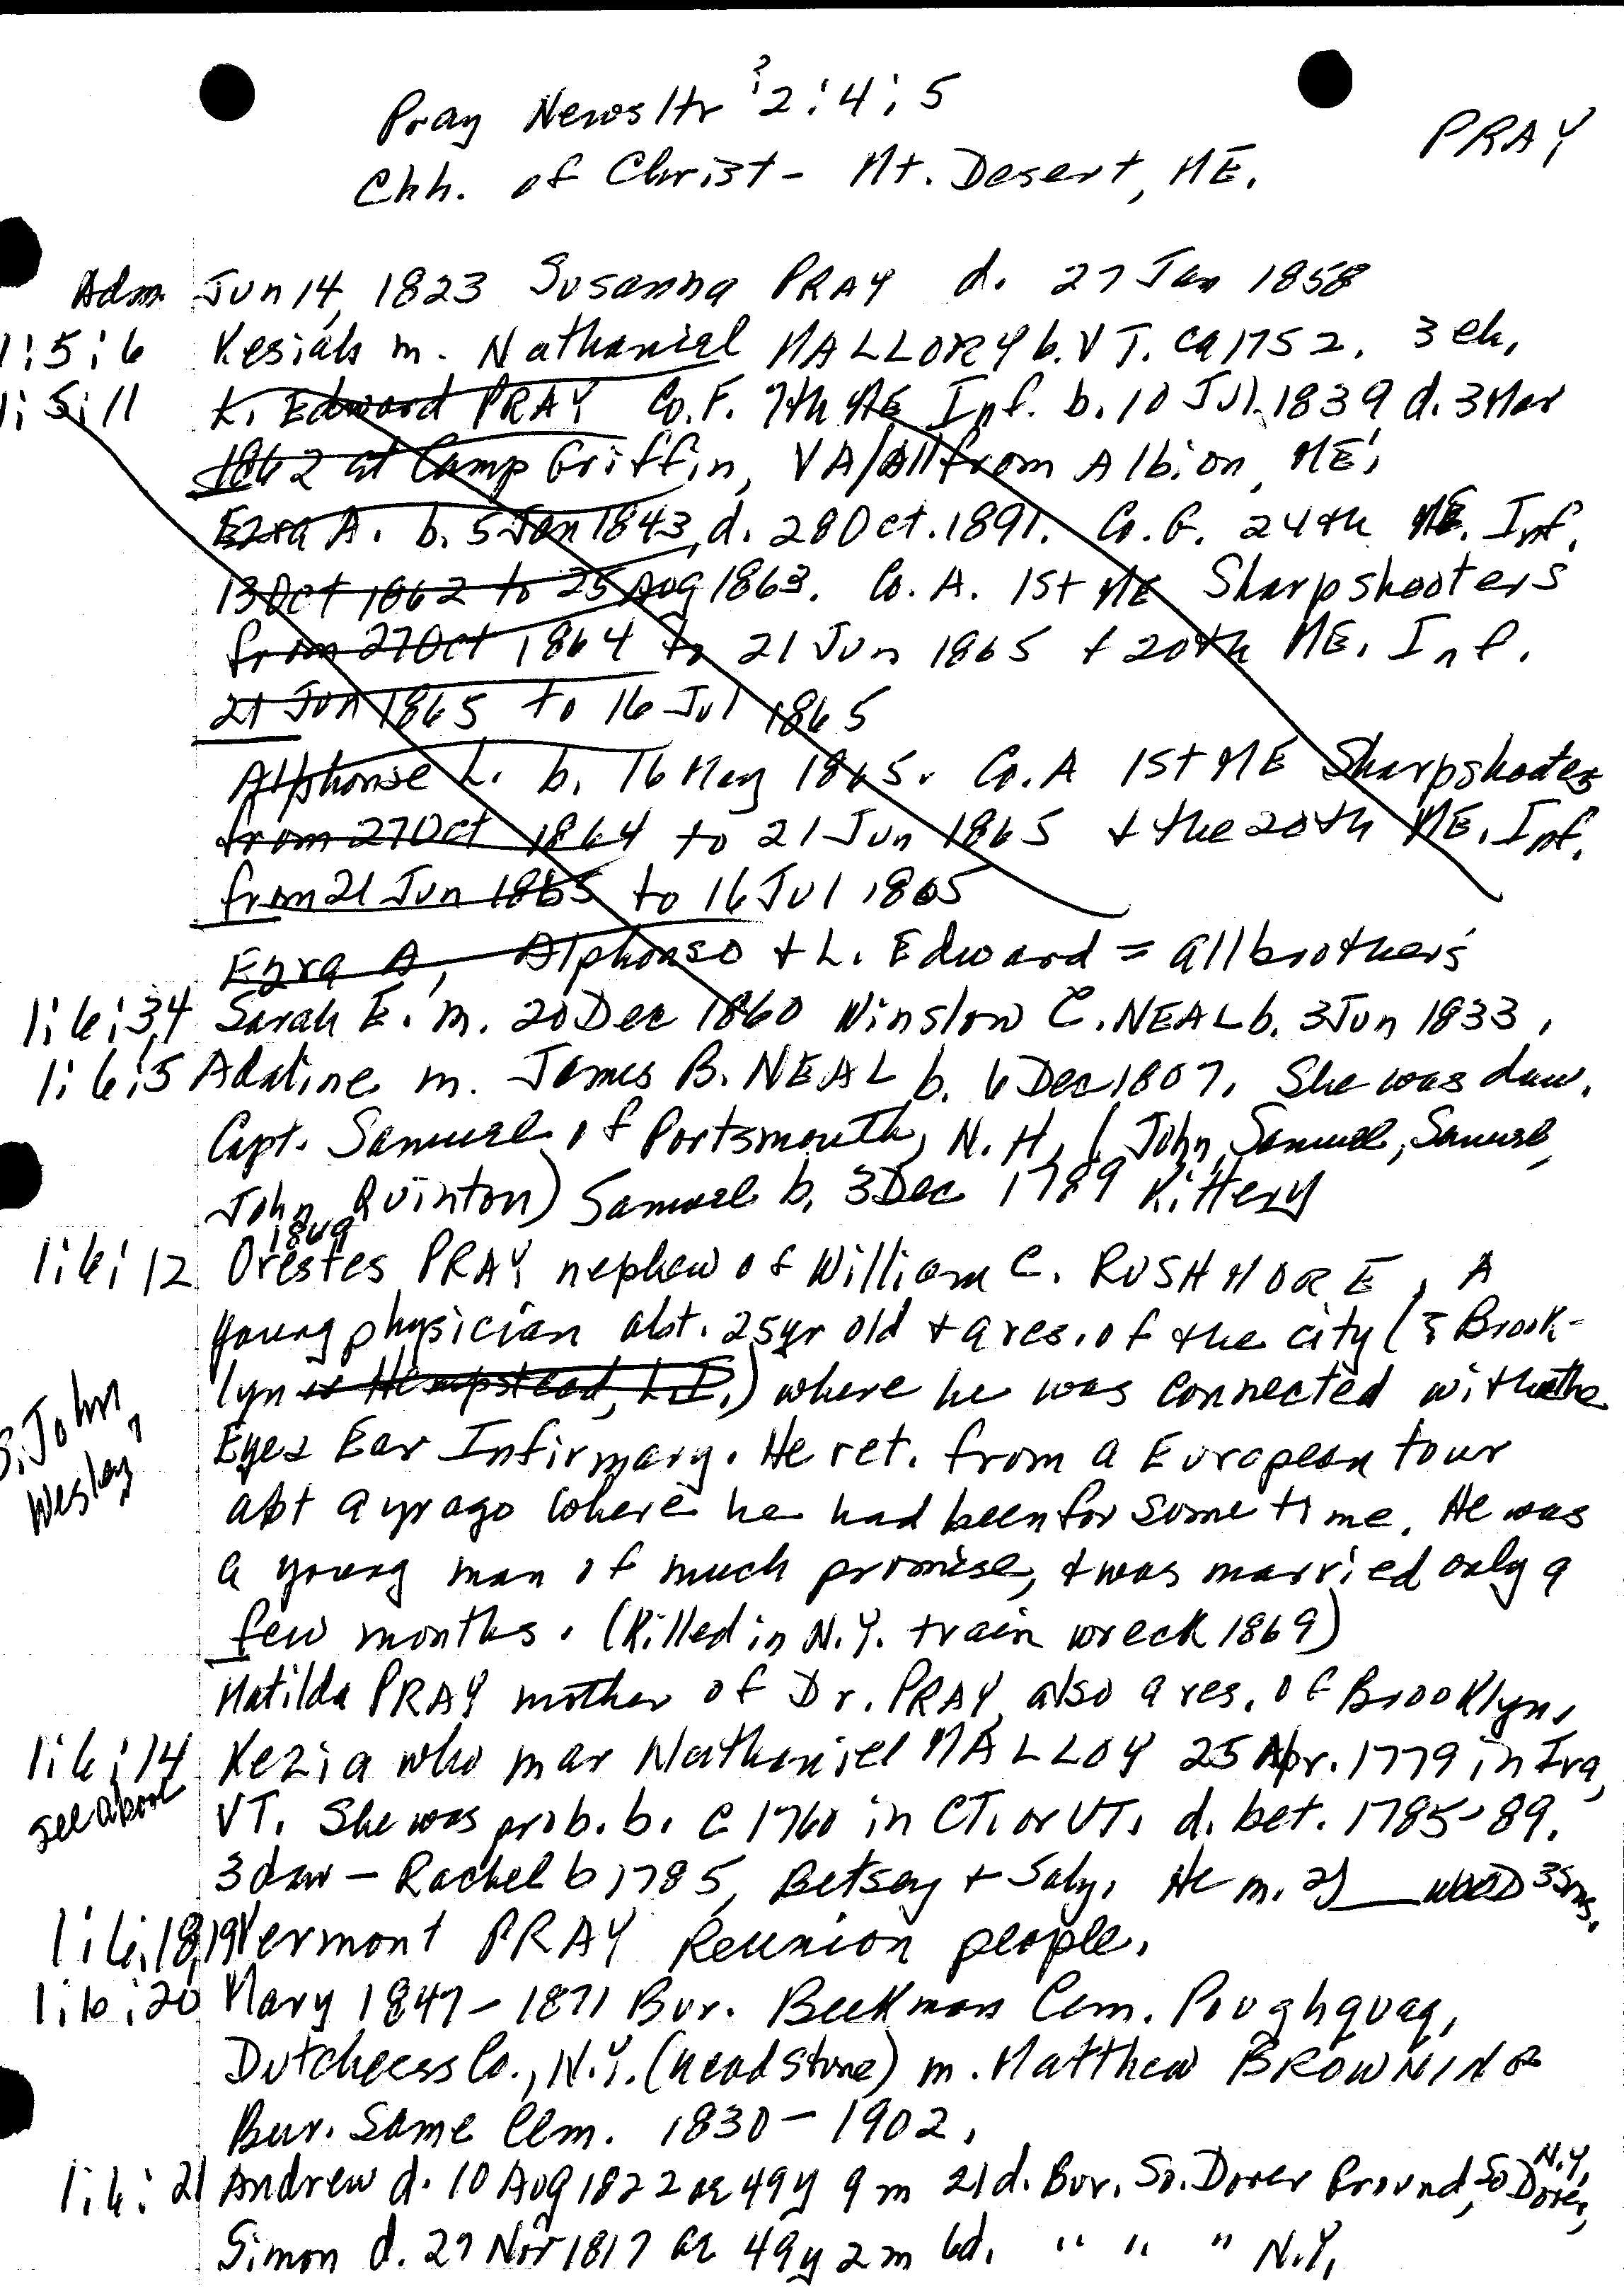 Pray Newsltr ? 2:4:5
PRAY
Chh. of Christ - Mt. Desert, ME.
Adm. Jun 14, 1823 Susanna PRAY d. 27 Jan 1858
1:5:6 Kesiah m. Nathanial MALLORY b. VT. ca 1752. 3 ch.
1:5:11 L. Edward PRAY Co. F. 7th ME Inf. b. 10 Jul. 1839 d. 3 Mar
1862 at Camp Griffin, VA/All from Albion, ME;
Ezra A. b. 5 Jan 1843, d. 28 Oct. 1891. Co. G. 24th ME. Inf.
13 Oct 1862 to 25 Aug 1863. Co. A. 1st ME Sharpshooters
from 27 Oct 1864 to 21 Jun 1865 + 20th ME. Inf.
21 Jun 1865 to 16 Jul 1865
Alphonse L. b. 16 May 1865. Co. A 1st ME Sharpshooters
from 27 Oct 1864 to 21 Jun 1865 + the 20th ME. Inf.
from 21 Jun 1865 to 16 Jul 1865
Ezra A, Alphonso + L. Edward = all brothers
1:6:3,4 Sarah E. m. 20 Dec 1860 Winslow C. NEAL b. 3 Jun 1833,
1:6:5 Adaline m. James B. NEAL b. 6 Dec 1807. She was dau.
Capt. Samuel of Portsmouth, N.H. (John, Samuel, Samuel,
John, Quinton) Samuel b. 3 Dec 1789 Kittery
1849
1:6:12 Orestes PRAY, nephew of William C. RUSHMORE, A
young physician abt. 25yr old + a res. of the city (Brook-
lyn or Hempstead, L.I.) where he was connected with the
B. John Wesley,
Eye & Ear Infirmary. He ret. from a European tour
abt a yr ago where he had been for some time. He was
a young man of much promise, + was married only a
few months. (Killed in N.Y. train wreck 1869)
Matilda PRAY mother of Dr. PRAY, also a res. of Brooklyn.
1:6:14 Kezia who mar Nathaniel MALLOY 25 Apr. 1779 in Ira,
see above VT. She was prob. b. c 1760 in CT. or VT. d. bet. 1785-89.
3 dau - Rachel b 1785, Betsey + Saly. He m. 2) ___ WOOD 3 sons.
1:6:18,19 Vermont PRAY Reunion people.
1:6:20 Mary 1847-1871 Bur. Beekman Cem. Poughquag,
Dutchess Co., N.Y. (headstone) m. Matthew BROWNING
Bur. Same Cem. 1830-1902.
1:6:21 Andrew d. 10 Aug 1822 ae 49y 9m 21d. Bur. So. Dover Ground, So Dover, N.Y.
Simon d. 27 Nov 1817 ae 49y 2m 6d. " " " N.Y.